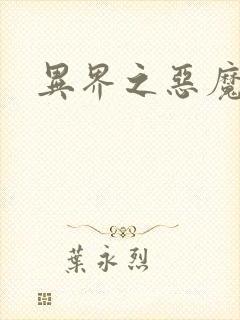 異界之惡魔
葉永烈